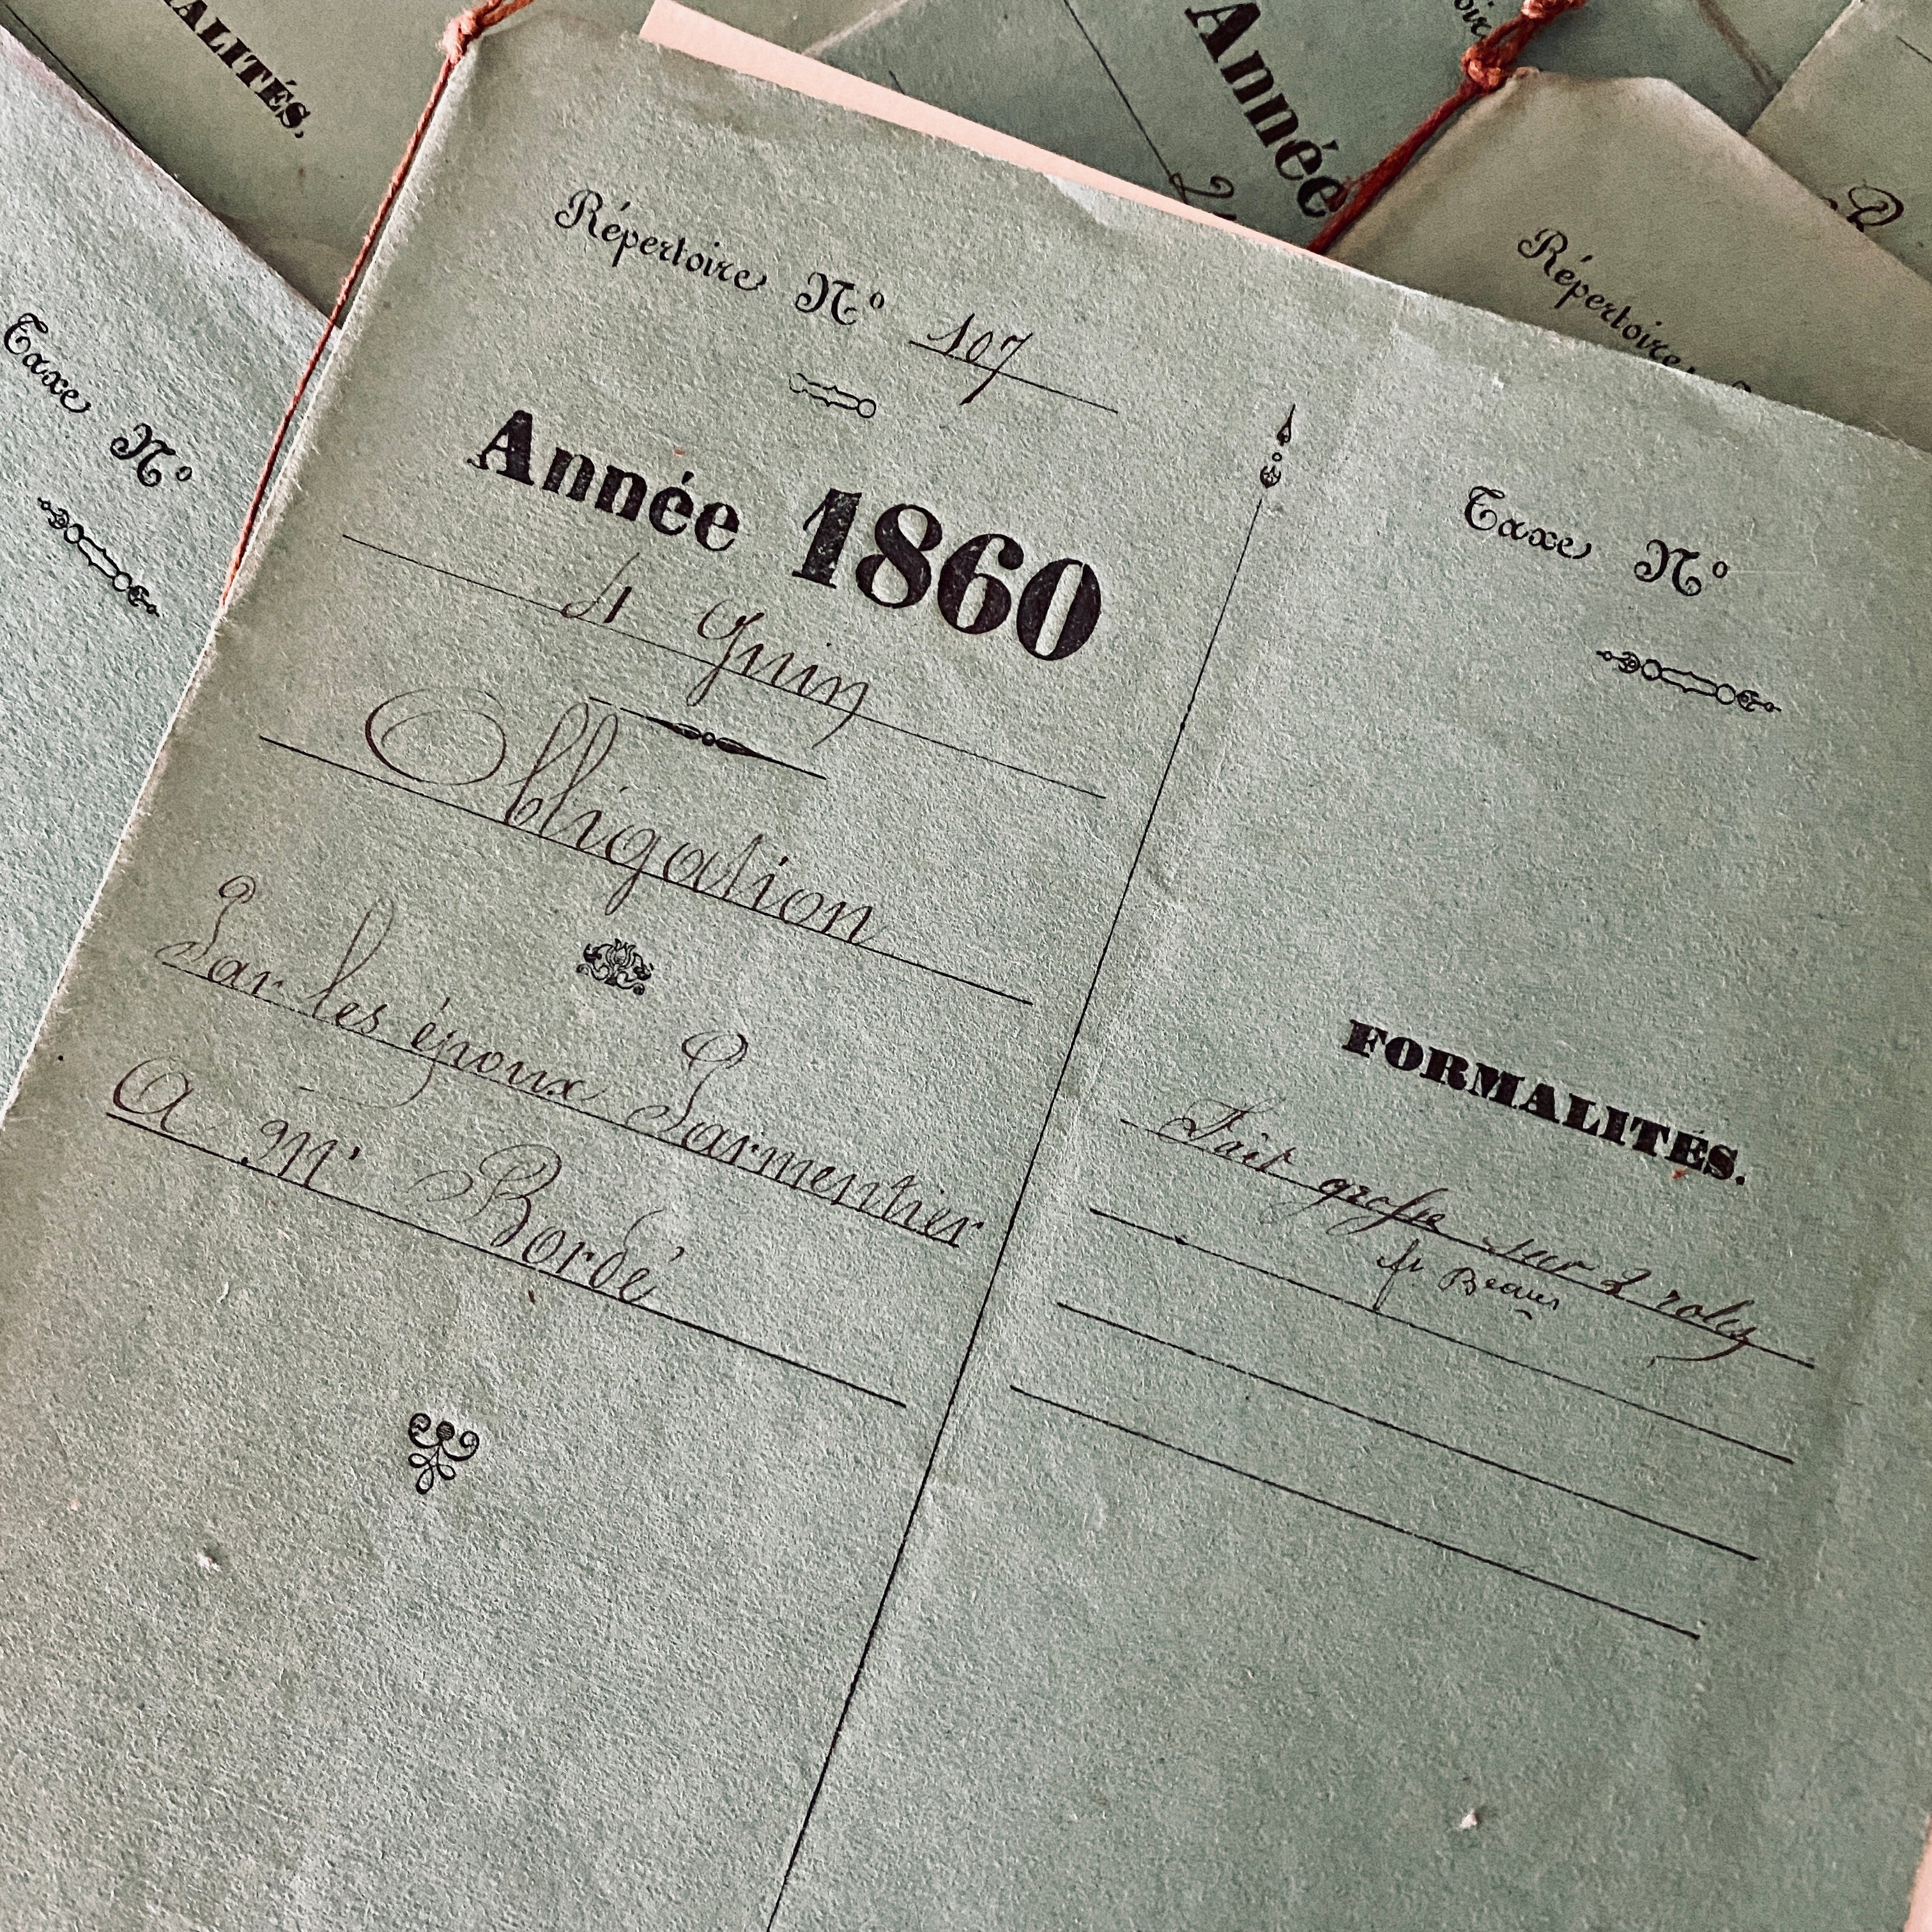 ALITÉS.
Année
Répertoire
Taxe N°
Répertoire N° 107
Année 1860
4 Juin
Obligation
Par les époux Parmentier
A Mr Bordé
Taxe N°
FORMALITÉS.
Fait grosse sur 2 roles